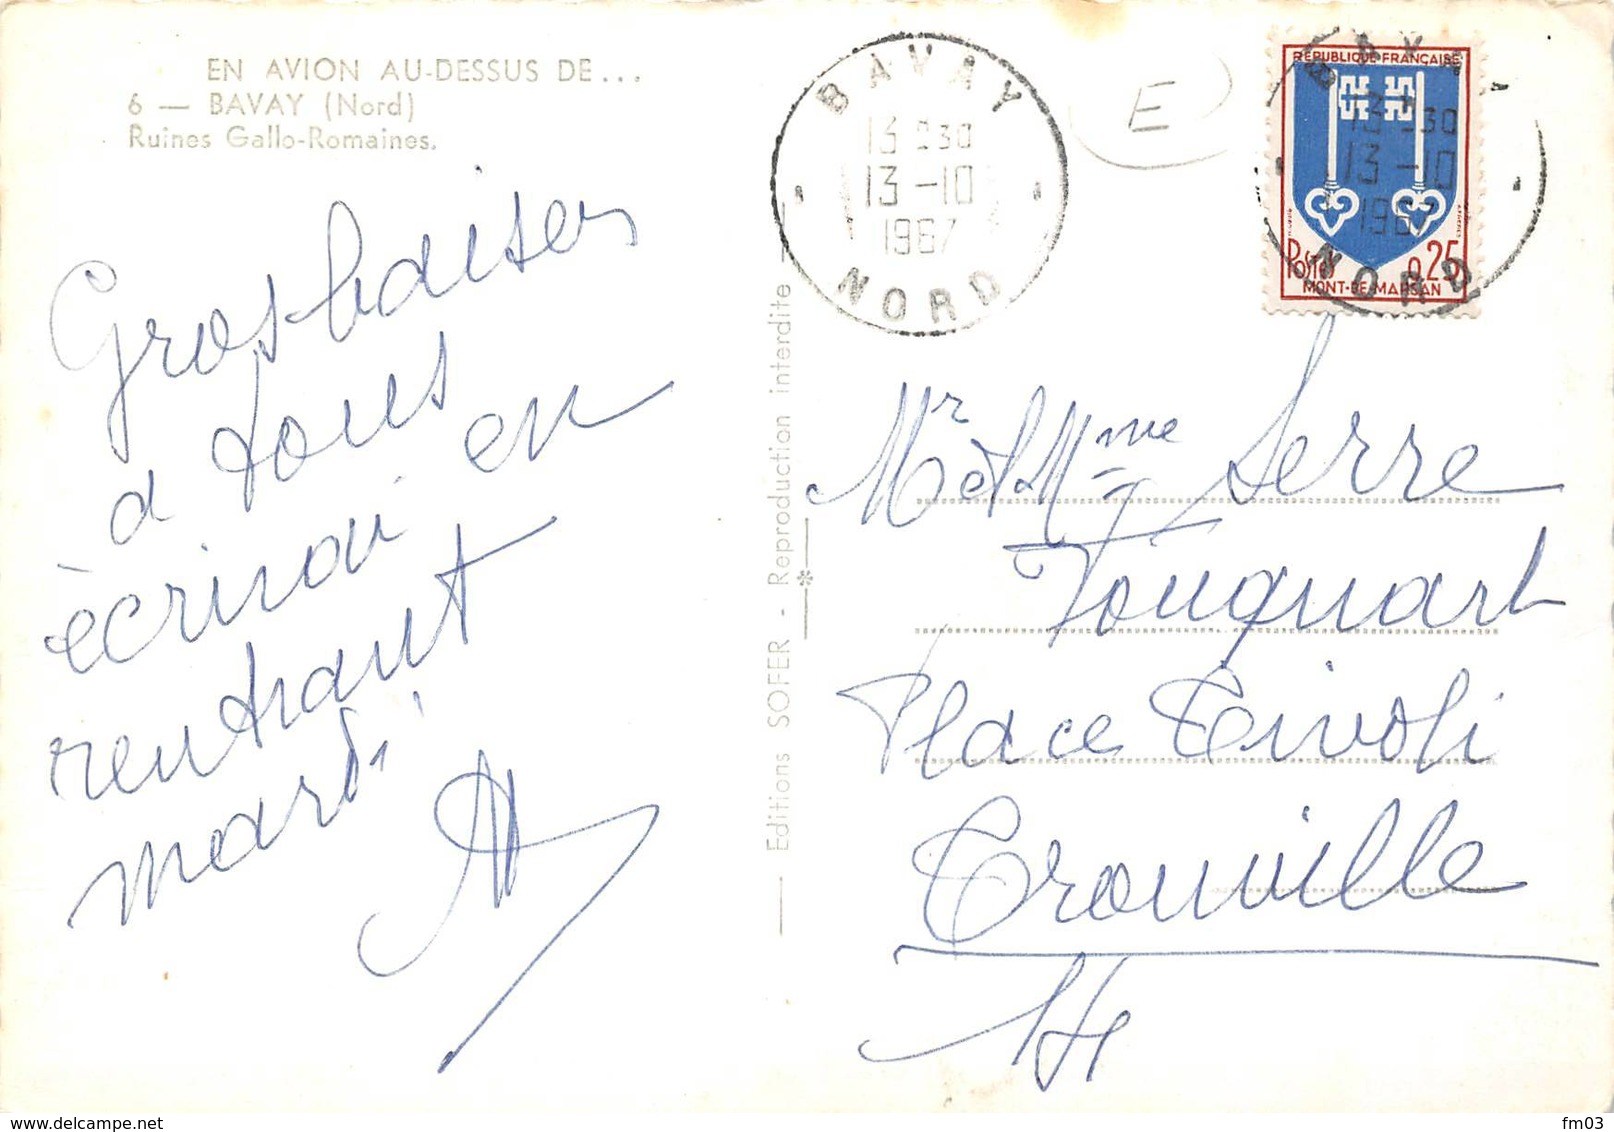 EN AVION AU-DESSUS DE...
6 — BAVAY (Nord)
Ruines Gallo-Romaines.
Gros baisers
a tous
écrivai en
rentrant
mardi
Editions SOFER - Reproduction interdite
BAVAY
13H30
13-10
1967
NORD
E
RÉPUBLIQUE FRANÇAISE
Postes 0,25
MONT-DE-MARSAN
BAVAY
13H30
13-10
1967
NORD
Mr et Mme Serre
Touquart
Place Tivoli
Trouville
s/
delcampe.net
fm03